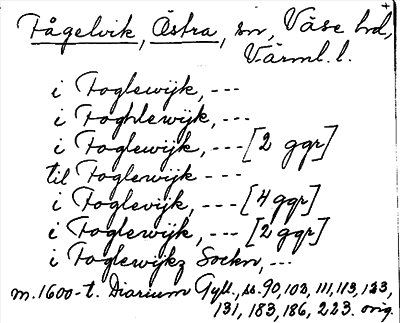 Fågelvik, Östra, sn, Väse hd,
Värml. l.
i Foglewijk, ---
i Foghlewijk, ---
i Foglewijk, --- [2 ggr]
til Foglerwijk ---
i Foglevijk, --- [4 ggr]
i Foglewijk, --- [2 ggr]
i Foglewijkz Sockn, ---
m. 1600-t. Diarium Gyll., ss. 90, 102, 111, 113, 123,
131, 183, 186, 223. orig.